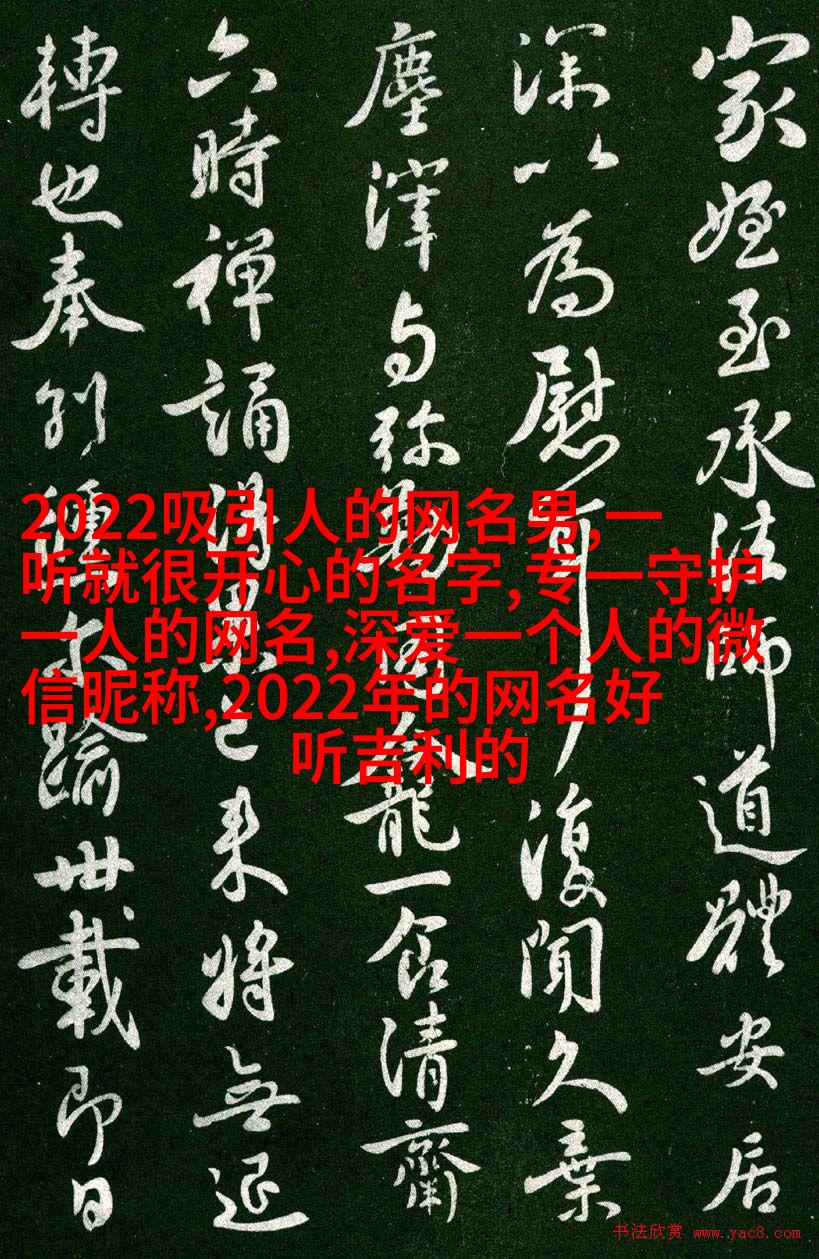 家姪至承法師道體安居
深以為慰耳復聞久棄
塵滓与弥勒同龕一食清齋
六時禪誦得果已来將無退
轉也奉別儵尓踰卅載即日
2022吸引人的网名男,一
听就很开心的名字,专一守护
一人的网名,深爱一个人的微
信昵称,2022年的网名好
听吉利的
书法欣赏 www.yac8.com